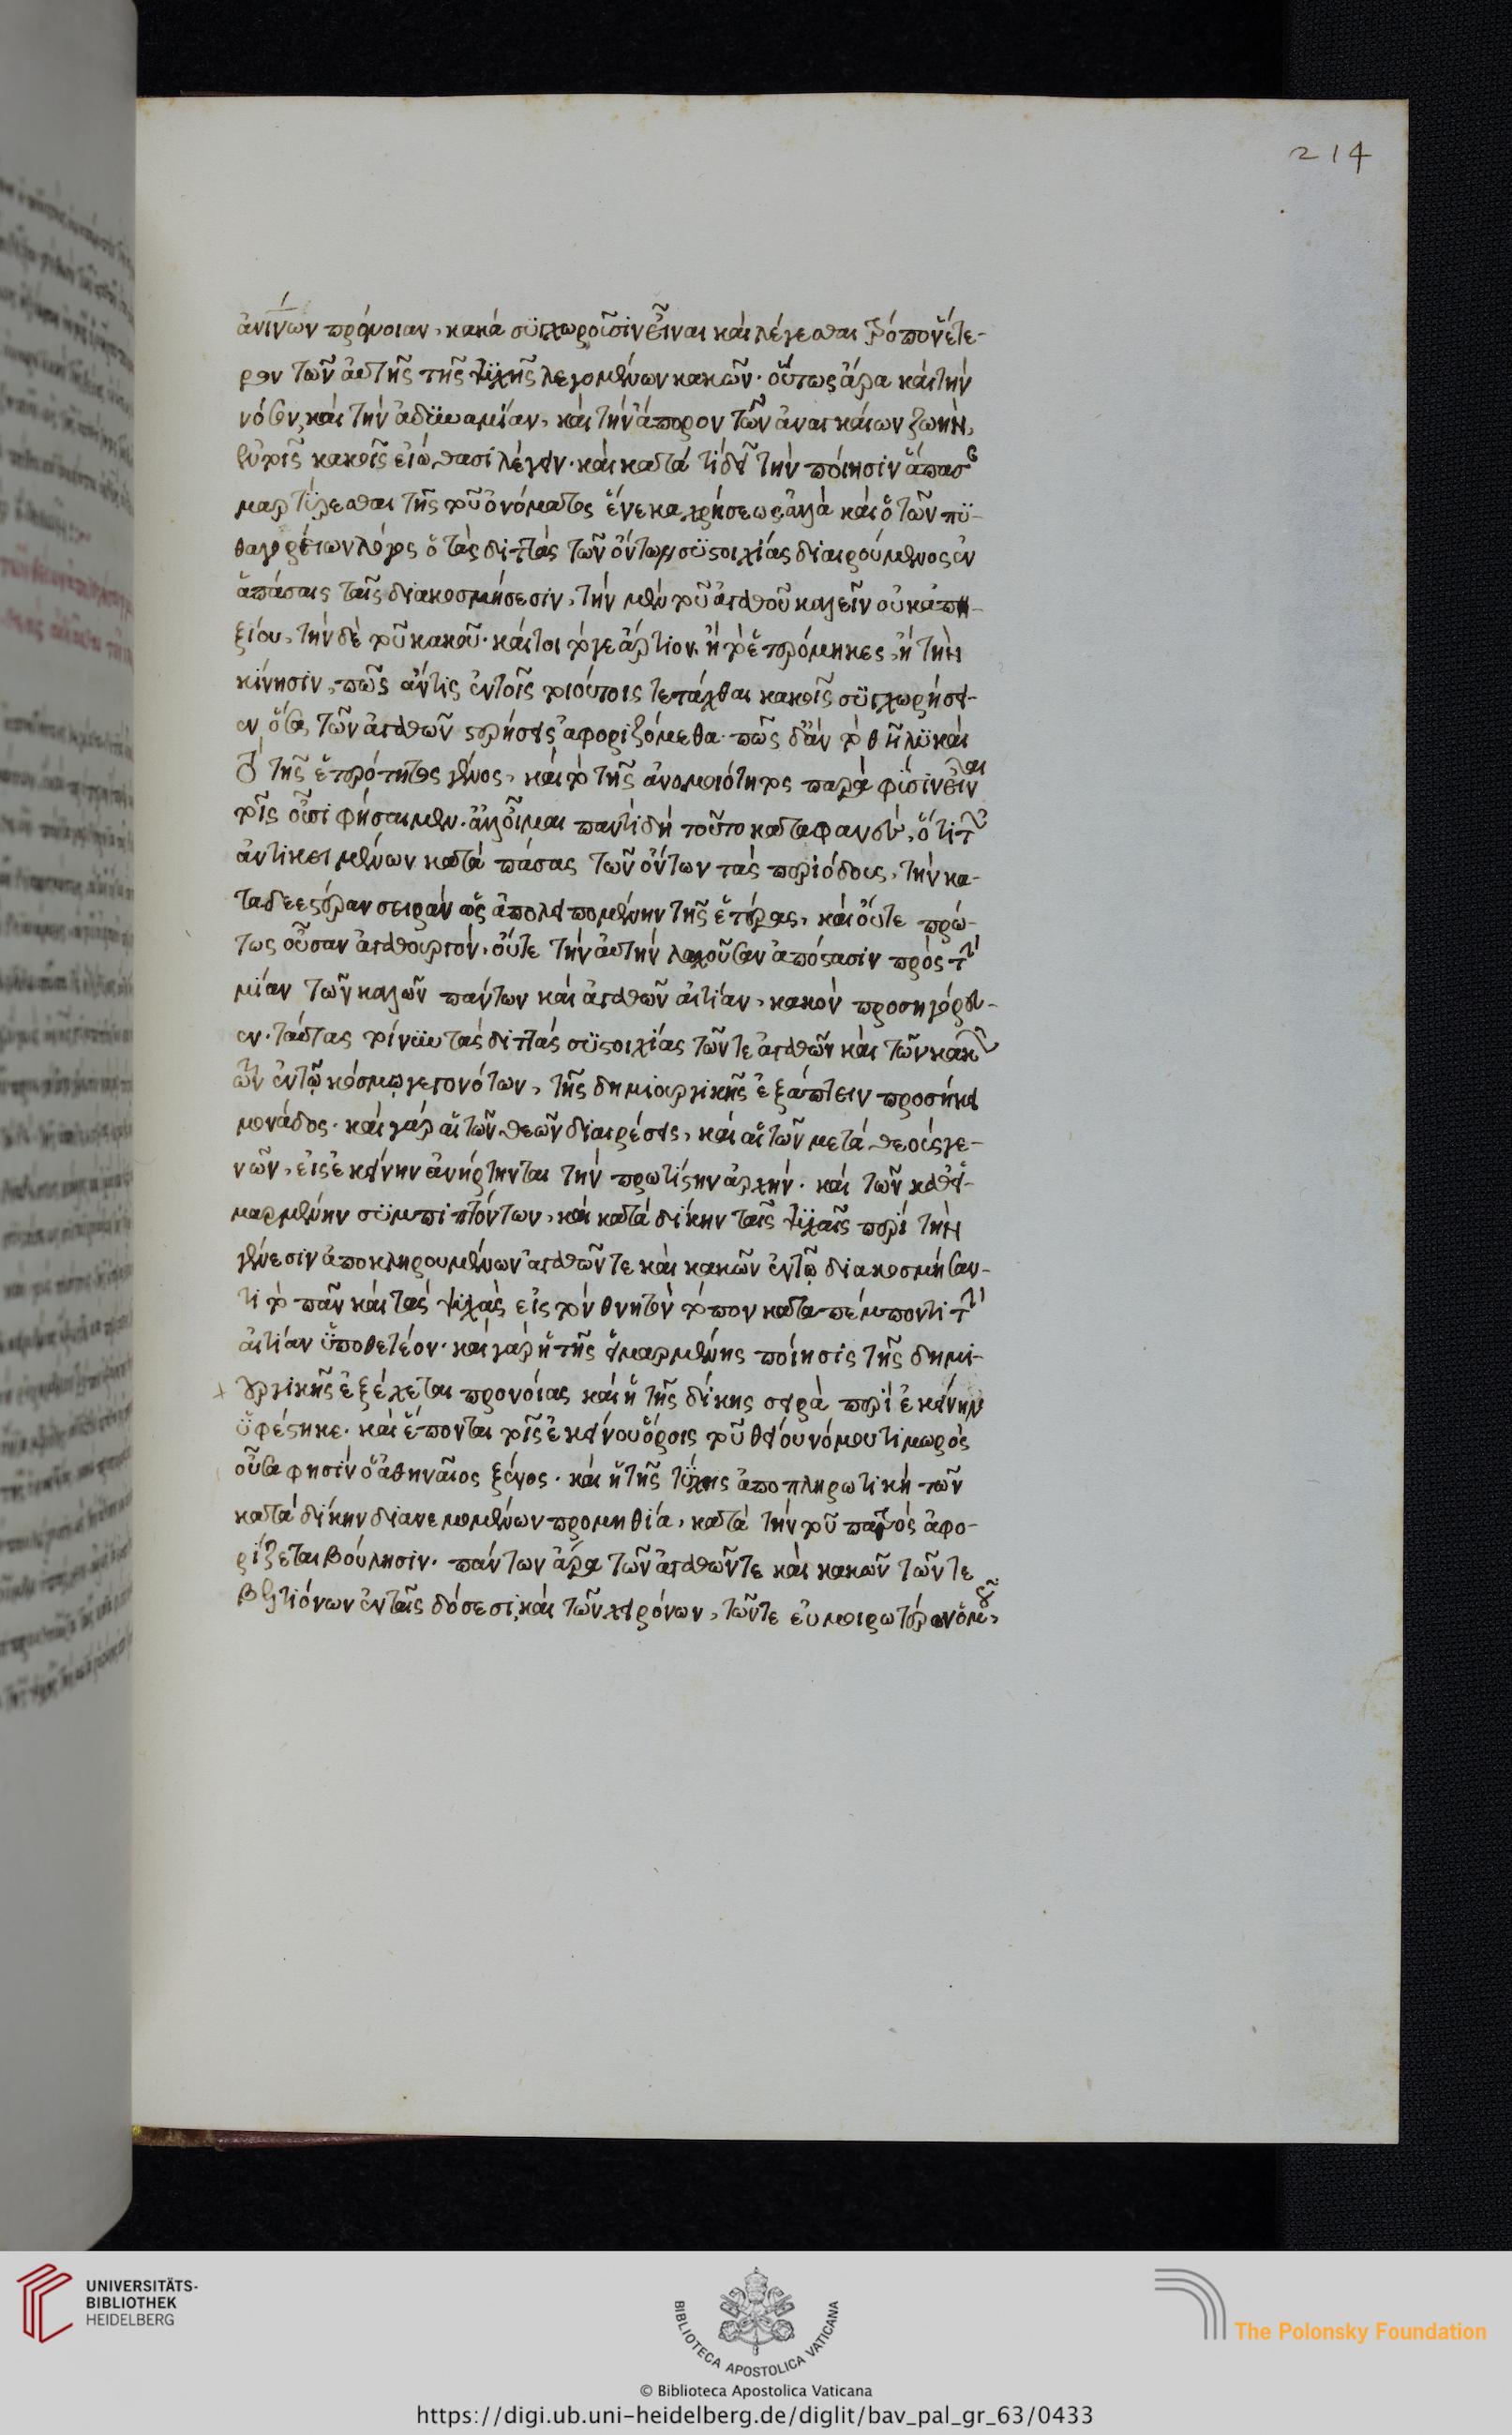 214
πρόνοιαν, κακὰ συγχωροῦσιν εἶναι καὶ λέγεσθαι τρόπον ἕτε-
ρον τῶν αὐτῆς τῆς ψυχῆς λεγομένων κακῶν· οὕτως ἄρα καὶ τὴν
νόσον, καὶ τὴν ἀδυναμίαν, καὶ τὴν ἄπορον τῶν ἀναγκαίων ζωήν,
ἐν τοῖς κακοῖς εἰώθασι λέγειν· καὶ κατὰ τί δεῖ τὴν ποίησιν ἅπασαν
μαρτύρεσθαι τῆς τοῦ ὀνόματος ἕνεκα χρήσεως ἀλλὰ καὶ ὁ τῶν πυ-
θαγορείων λόγος ὁ τὰς διττὰς τῶν ὄντων συστοιχίας διαιρούμενος ἐν
ἁπάσαις ταῖς διακοσμήσεσιν, τὴν μὲν τοῦ ἀγαθοῦ καλεῖν οὐκ ἀπη-
ξίου, τὴν δὲ τοῦ κακοῦ· καίτοι τό γε ἄρτιον ἢ τὸ ἑτερόμηκες, ἢ τὴν
κίνησιν, πῶς ἄν τις ἐν τοῖς τοιούτοις τετάχθαι κακοῖς συγχωρήσει-
εν ὅσα τῶν ἀγαθῶν στερήσεις ἀφοριζόμεθα· πῶς δ' ἂν τὸ θῆλυ καὶ
τὸ τῆς ἑτερότητος γένος, καὶ τὸ τῆς ἀνομοιότητος παρὰ φύσιν εἶναι
τοῖς οὖσι φήσαιμεν· ἀλλ' οἶμαι παντὶ δὴ τοῦτο καταφανές, ὅτι τῶν
ἀντικειμένων κατὰ πάσας τῶν ὄντων τὰς περιόδους, τὴν κα-
ταδεεστέραν σειρὰν ὡς ἀπολειπομένην τῆς ἑτέρας, καὶ οὔτε πρώ-
τως οὖσαν ἀγαθουργόν, οὔτε τὴν αὐτὴν λαχοῦσαν ἀπόστασιν πρὸς τὴν
μίαν τῶν καλῶν πάντων καὶ ἀγαθῶν αἰτίαν, κακὸν προσηγόρευ-
εν· ταύτας τοίνυν τὰς διττὰς συστοιχίας τῶν τε ἀγαθῶν καὶ τῶν κακῶν
τῶν ἐν τῷ κόσμῳ γεγονότων, τῆς δημιουργικῆς ἐξάπτειν προσήκει
μονάδος· καὶ γὰρ αἱ τῶν θεῶν διαιρέσεις, καὶ αἱ τῶν μετὰ θεοὺς γε-
νῶν, εἰς ἐκείνην ἀνήρτηνται τὴν πρωτίστην ἀρχήν· καὶ τῶν καθ' εἱ-
μαρμένην συμπιπτόντων, καὶ κατὰ δίκην ταῖς ψυχαῖς περὶ τὴν
γένεσιν ἀποκληρουμένων ἀγαθῶν τε καὶ κακῶν ἐν τῷ διακοσμήσαν-
τι τὸ πᾶν καὶ τὰς ψυχὰς εἰς τὸν θνητὸν τόπον καταπέμποντι τὴν
αἰτίαν ὑποθετέον· καὶ γὰρ ἡ τῆς εἱμαρμένης ποίησις τῆς δημι-
ουργικῆς ἐξέχεται προνοίας καὶ ἡ τῆς δίκης σειρὰ περὶ ἐκείνην
ὑφέστηκε· καὶ ἕπονται τοῖς ἐκείνου ὅροις τοῦ θείου νόμου τιμωρὸς
οὖσα φησὶν ὁ ἀθηναῖος ξένος· καὶ ἡ τῆς τύχης ἀποπληρωτικὴ τῶν
κατὰ δίκην διανεμομένων προμηθία, κατὰ τὴν τοῦ πατρὸς ἀφο-
ρίζεται βούλησιν· πάντων ἄρα τῶν ἀγαθῶν τε καὶ κακῶν τῶν τε
βελτιόνων ἐν ταῖς δόσεσι, καὶ τῶν χειρόνων, τῶν τε εὐμοιροτέρων ὁμοῦ,
UNIVERSITÄTS-
BIBLIOTHEK
HEIDELBERG
BIBLIOTECA APOSTOLICA VATICANA
© Biblioteca Apostolica Vaticana
The Polonsky Foundation
https://digi.ub.uni-heidelberg.de/diglit/bav_pal_gr_63/0433